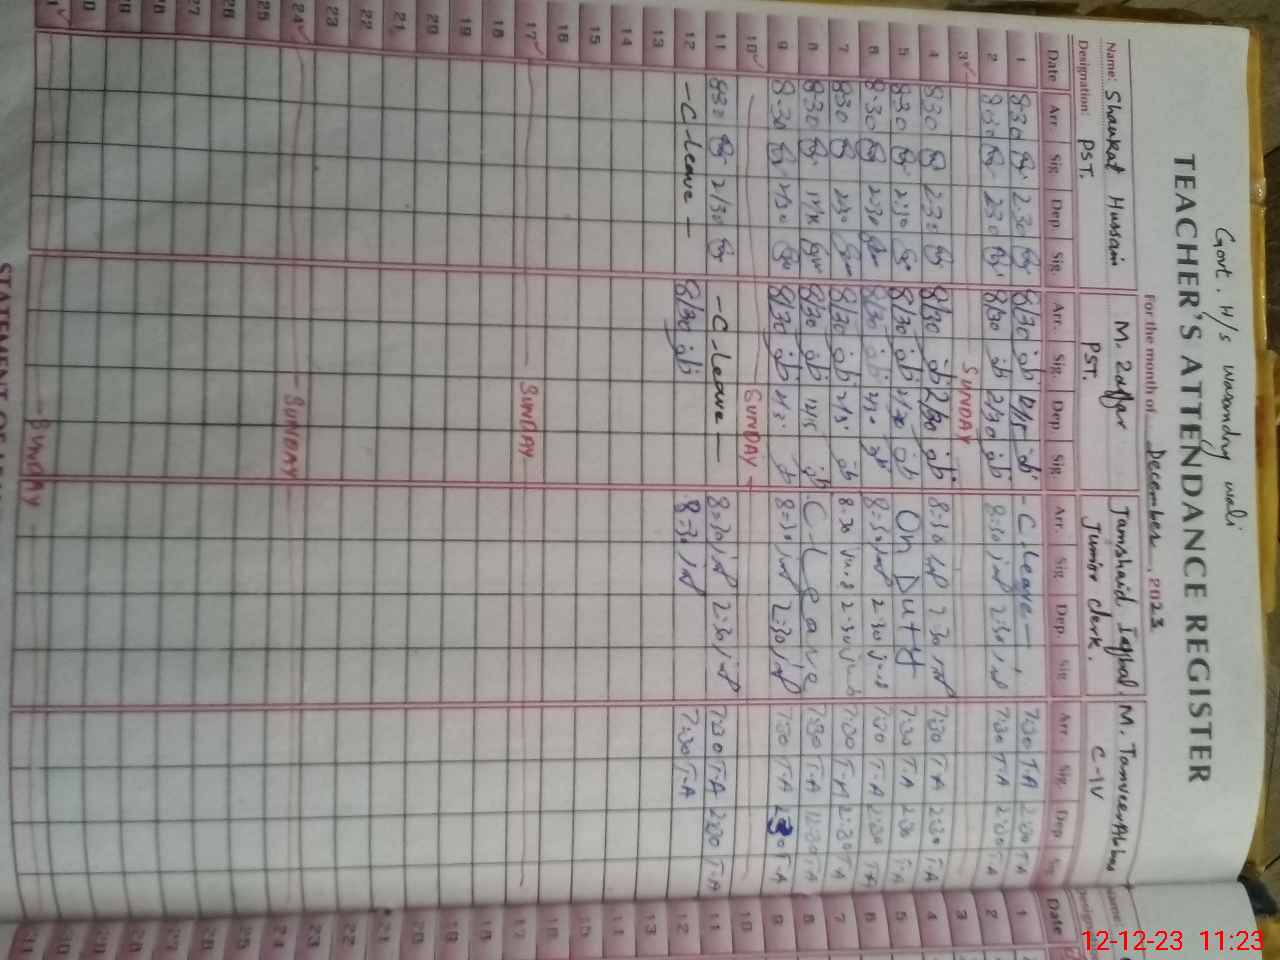 Govt. H/S wali
TEACHER'S ATTENDANCE REGISTER
For the month of December, 2023
Name: Shaukat Hussain M. Zaffar Jamshaid Iqbal. M. Tanveer Abbas
Designation: PST. PST. Junior Clerk. C-IV
Date Arr. Sig. Dep. Sig. Arr. Sig. Dep. Sig. Arr. Sig. Dep. Sig. Arr. Sig. Dep. Date
1 8:30 2:30 8/30 12/15 - C. Leave - 7:30 T.A 2:30 T.A 1
2 8:30 2:30 8/30 2/30 8:30 2:30 7:30 T.A 2:30 T.A 2
3 SUNDAY 3
4 8:30 2:30 8/30 2/30 8:30 2:30 7:30 T.A 2:30 T.A 4
5 8:30 2:30 8/30 2/30 On Duty 7:30 T.A 2:30 T.A 5
6 8:30 2:30 8/30 2/30 8:30 2:30 7:30 T.A 2:30 T.A 6
7 8:30 2:30 8/30 8:30 2:30 7:30 T.A 2:30 T.A 7
8 8:30 8/30 12/15 C-Leave 7:30 T.A 12:30 T.A 8
9 8:30 2/30 8/30 8:30 2:30 7:30 T.A 2:30 T.A 9
10 SUNDAY 10
11 8:30 2/30 - C. Leave - 8:30 2:30 7:30 T.A 2:30 T.A 11
12 - C. Leave - 8/30 8:30 7:30 T.A 12
13 13
14 11
15 10
16 16
17 SUNDAY 17
18 18
19 19
20 20
21 21
22 22
23 23
24 SUNDAY 24
25 25
26 26
27 27
28 28
29 29
30 30
31 SUNDAY 31
STATEMENT OF
12-12-23 11:23